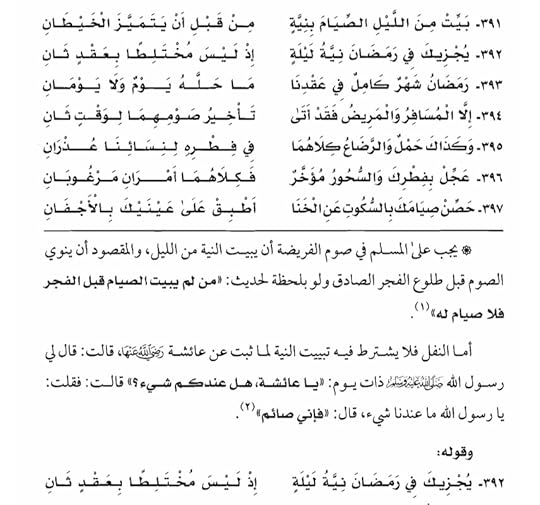 ٣٩١- بَيِّتْ مِنَ اللَّيْلِ الصِّيَامَ بِنِيَّةٍ مِنْ قَبْلِ أَنْ يَتَمَيَّزَ الْخَيْطَانِ
٣٩٢- يُجْزِيكَ فِي رَمَضَانَ نِيَّةُ لَيْلَةٍ إِذْ لَيْسَ مُخْتَلِطًا بِعَقْدٍ ثَانِ
٣٩٣- رَمَضَانُ شَهْرٌ كَامِلٌ فِي عَقْدِنَا مَا حَلَّهُ يَوْمٌ وَلَا يَوْمَانِ
٣٩٤- إِلَّا الْمُسَافِرُ وَالْمَرِيضُ فَقَدْ أَتَىٰ تَأْخِيرُ صَوْمِهِمَا لِوَقْتٍ ثَانِ
٣٩٥- وَكَذَاكَ حَمْلٌ وَالرَّضَاعُ كِلَاهُمَا فِي فِطْرِهِ لِنِسَائِنَا عُذْرَانِ
٣٩٦- عَجِّلْ بِفِطْرِكَ وَالسُّحُورُ مُؤَخَّرٌ فَكِلَاهُمَا أَمْرَانِ مَرْغُوبَانِ
٣٩٧- حَصِّنْ صِيَامَكَ بِالسُّكُوتِ عَنِ الْخَنَا أَطْبِقْ عَلَىٰ عَيْنَيْكَ بِالْأَجْفَانِ
❁ يجب علىٰ المسلم في صوم الفريضة أن يبيت النية من الليل، والمقصود أن ينوي
الصوم قبل طلوع الفجر الصادق ولو بلحظة لحديث: «من لم يبيت الصيام قبل الفجر
فلا صيام له»(١).
أما النفل فلا يشترط فيه تبييت النية لما ثبت عن عائشة رَضِيَ اللَّهُ عَنْهَا، قالت: قال لي
رسول الله صَلَّى اللَّهُ عَلَيْهِ وَسَلَّمَ ذات يوم: «يا عائشة، هل عندكم شيء؟» قالت: فقلت:
يا رسول الله ما عندنا شيء، قال: «فإني صائم»(٢).
وقوله:
٣٩٢- يُجْزِيكَ فِي رَمَضَانَ نِيَّةُ لَيْلَةٍ إِذْ لَيْسَ مُخْتَلِطًا بِعَقْدٍ ثَانِ